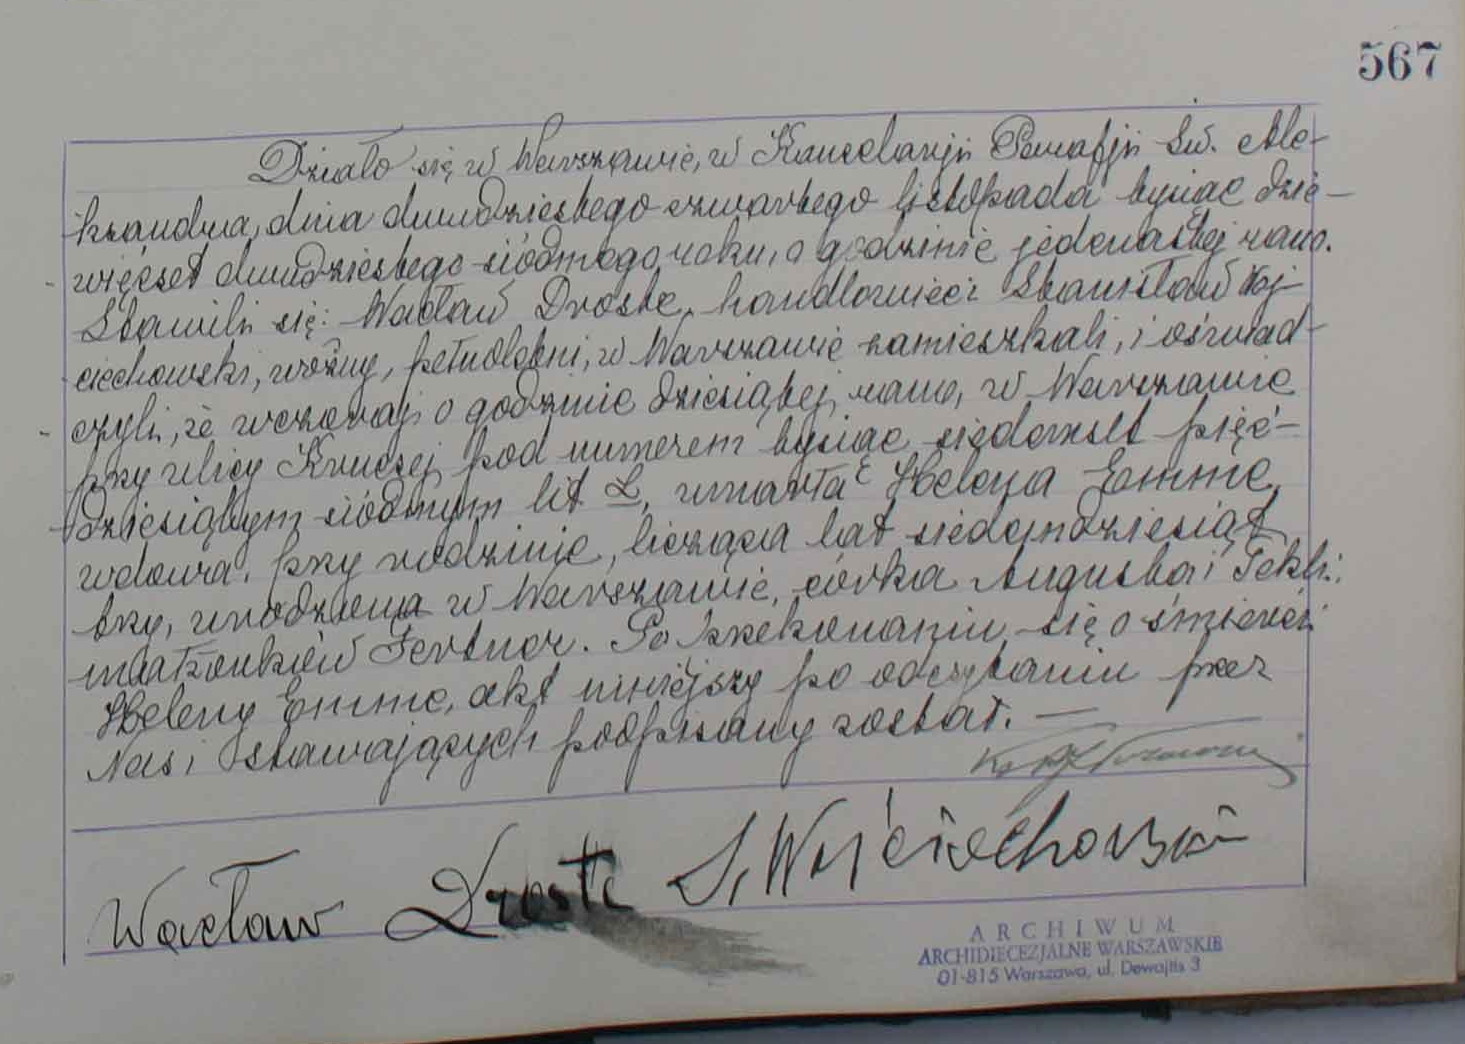 567
Działo się w Warszawie, w Kancelarji Parafji św. Ale-
ksandra, dnia dwudziestego czwartego listopada tysiąc dzie-
więćset dwudziestego siódmego roku, o godzinie jedenastej rano.
Stawili się: Wacław Droste, handlowiec i Stanisław Woj-
ciechowski, woźny, pełnoletni, w Warszawie zamieszkali, i oświad-
czyli, że wczoraj o godzinie dziesiątej rano, w Warszawie
przy ulicy Kruczej pod numerem tysiąc siedemset pięć-
dziesiątym siódmym lit L, umarła Helena Emme,
wdowa, przy rodzinie, licząca lat siedemdziesiąt
trzy, urodzona w Warszawie, córka Augusta i Tekli,
małżonków Fertner. Po przekonaniu się o śmierci
Heleny Emme, akt niniejszy po odczytaniu przez
Nas i stawających podpisany został. —
Wacław Droste S. Wojciechowski
ARCHIWUM
ARCHIDIECEZJALNE WARSZAWSKIE
01-815 Warszawa, ul. Dewajtis 3